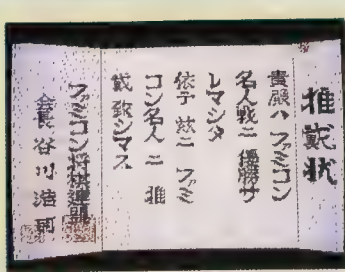 推戴状
貴殿ハ ファミコン
名人戦ニ 優勝サ
レマシタ
依テ 玆ニ ファミ
コン名人 ニ 推
戴 致シマス
ファミコン将棋連盟
会長 谷川 浩司